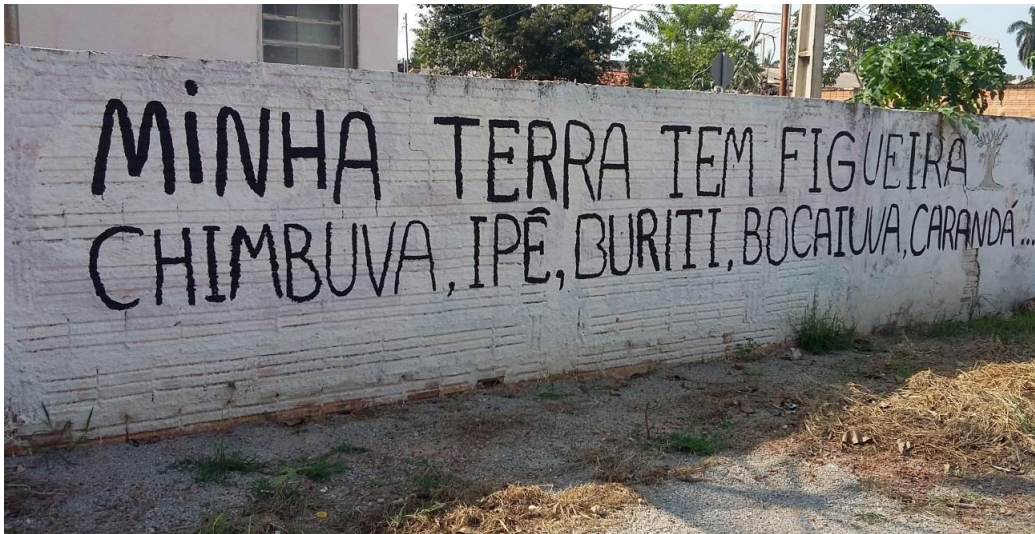 MiNHA TERRA TEM FIGUEIRA
CHIMBUVA, IPÊ, BURITI, BOCAIUVA, CARANDÁ...